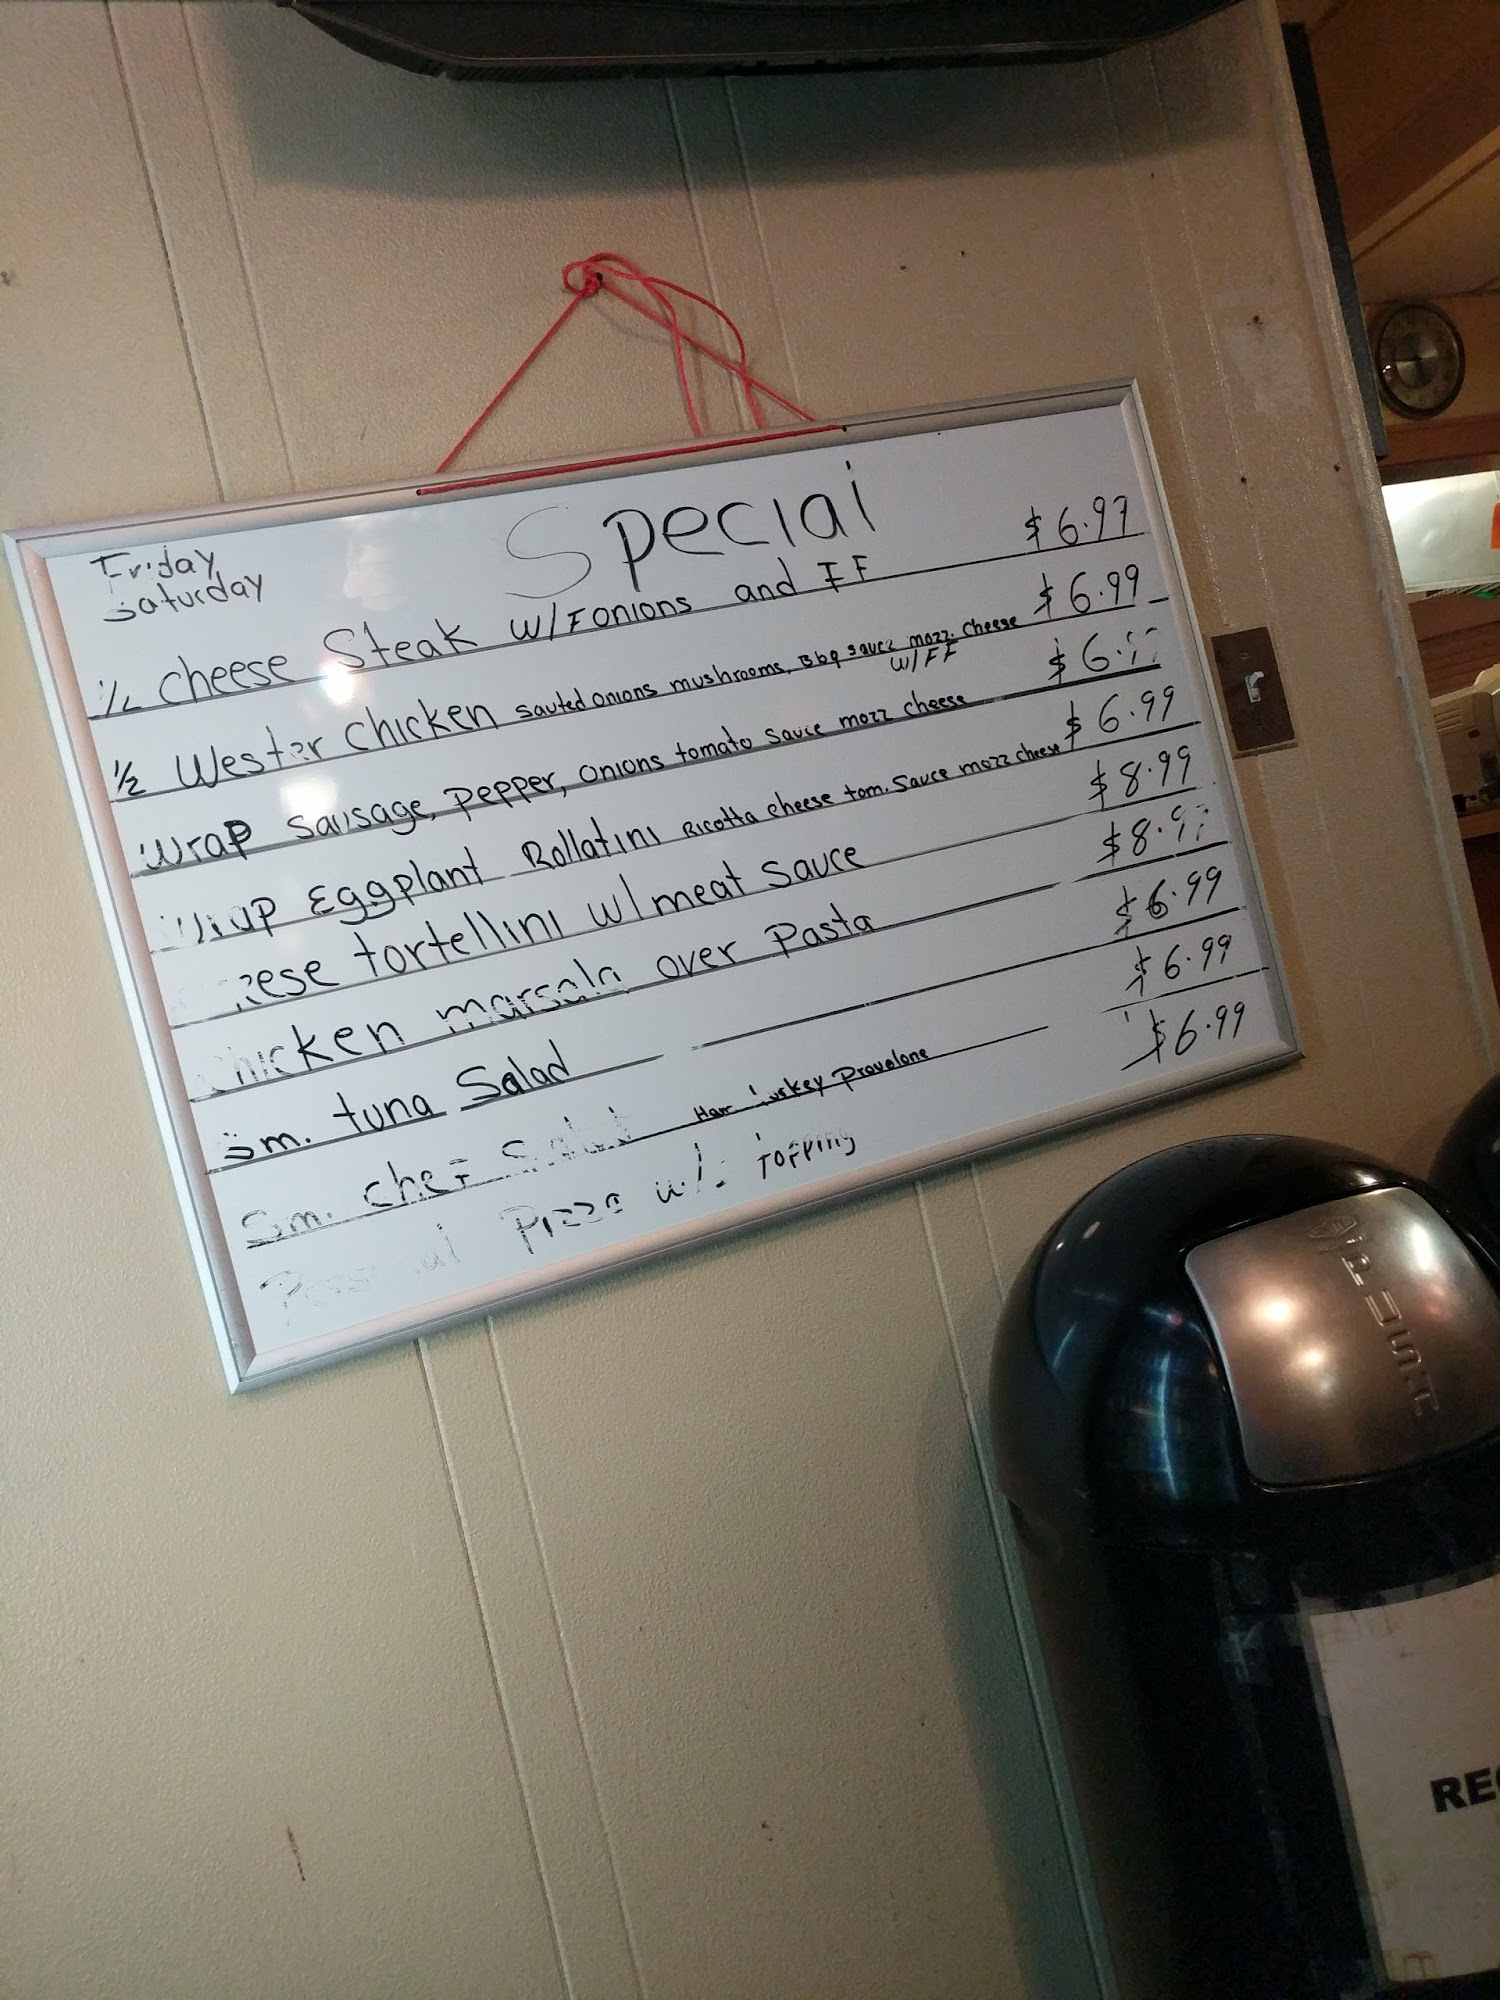 Friday
Saturday
Special
1/2 cheese Steak w/Fonions and FF $6.99
1/2 Wester chicken sauted onions mushrooms, Bbq sauce mozz. cheese $6.99
w/FF
wrap sausage, pepper, onions tomato sauce mozz cheese $6.99
wrap Eggplant Rollatini Ricotta cheese tom. sauce mozz cheese $6.99
cheese tortellini w/meat sauce $8.99
chicken marsala over Pasta $8.99
Sm. tuna Salad $6.99
Sm. chef Salad Ham turkey Provolone $6.99
Personal Pizza w/1 topping $6.99